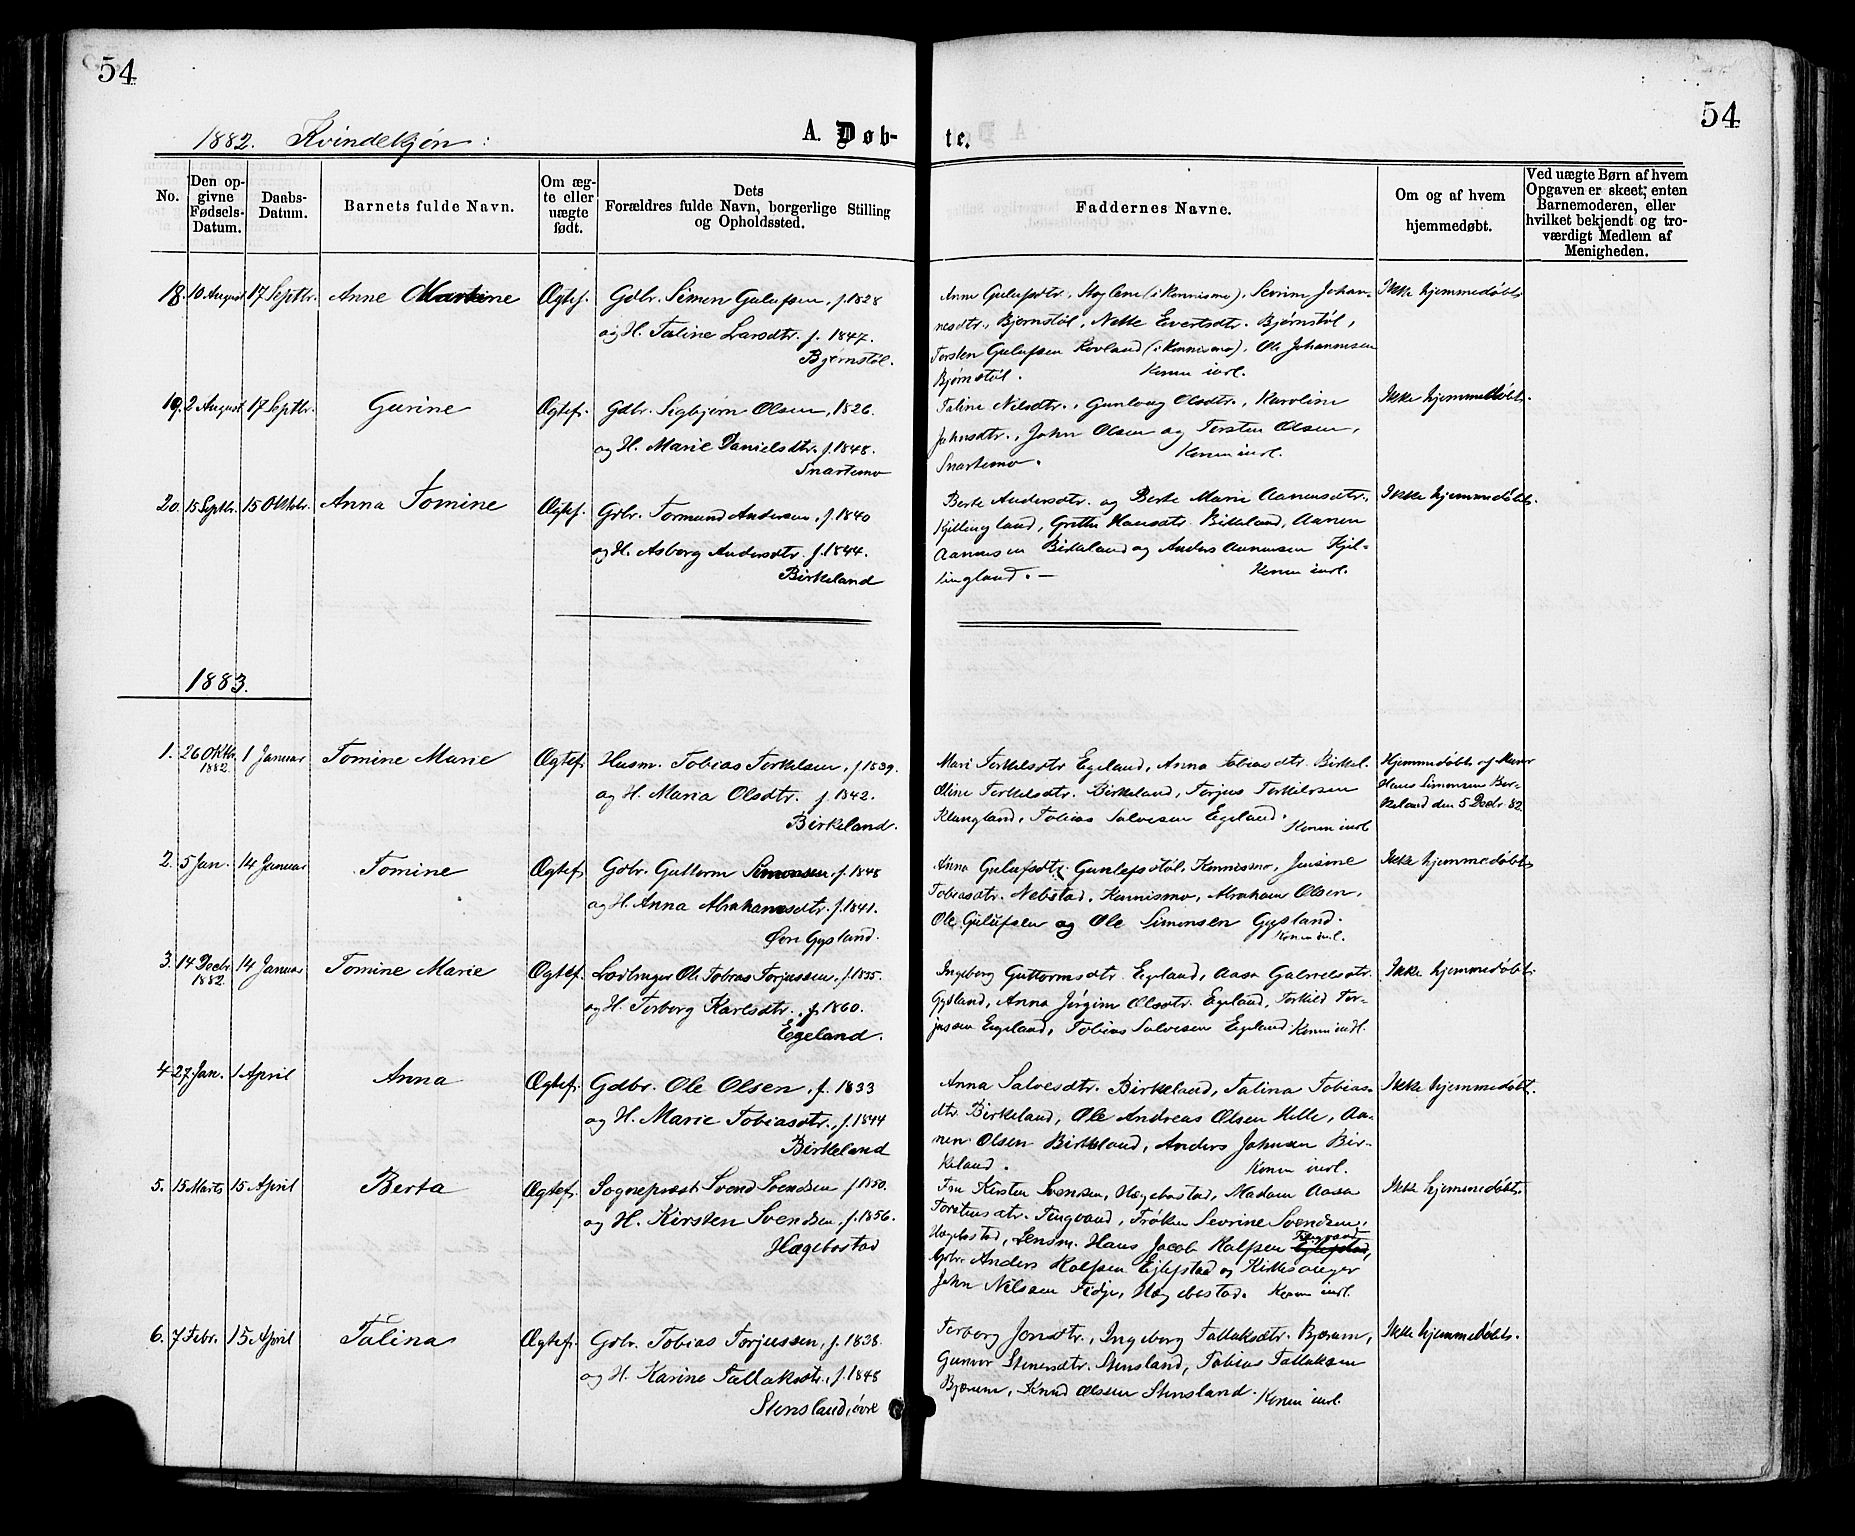 54
54
1882. Kvindekjøn:
A. Døb-
te.
No.
Den op-
givne
Fødsels-
Datum.
Daabs-
Datum.
Barnets fulde Navn.
Om æg-
te eller
uægte
født.
Dets
Forældres fulde Navn, borgerlige Stilling
og Opholdssted.
Faddernes Navne.
Om og af hvem
hjemmedøbt.
Ved uægte Børn af hvem
Opgaven er skeet; enten
Barnemoderen, eller
hvilket bekjendt og tro-
værdigt Medlem af
Menigheden.
18. 10 August 17 Septbr. Anne Martine Ægtef. Gdbr. Simon Gulufsen, f. 1828
og H. Taline Larsdtr. f. 1847.
Bjørnstøl.
Anne Gulufsdtr. (i Konnismo), Sevrine Johan-
nesdtr., Bjørnstøl, Nette Evertsdtr. Bjørnstøl,
Torsten Gulufsen Rovland (i Konnismo), Ole Johannesen
Bjørnstøl. Konen indl.
Ikke hjemmedøbt
19. 2 August 17 Septbr. Gurine Ægtef. Gdbr. Sigbjørn Olsen, 1826.
og H. Marie Danielsdtr. f. 1848.
Snartemo
Taline Nilsdtr., Gunlaug Olsdtr., Karoline
Johnsdtr., John Olsen og Torsten Olsen,
Snartemo. Konen indl.
Ikke hjemmedøbt.
20. 15 Septbr. 15 Oktbr. Anna Tomine Ægtef. Gdbr. Tormund Andersen, f. 1840
og H. Asborg Andersdtr. f. 1844.
Birkeland
Berte Andersdtr. og Berte Marie Aanensdtr.
Kjellingland, Grethe Hansdtr. Birkeland, Aanen
Aanensen Birkeland og Anders Aanensen Kjel-
lingland. — Konen indl.
Ikke hjemmedøbt.
1883.
1. 26 Oktbr. 1882. 1 Januar Tomine Marie Ægtef. Husm. Tobias Torkelsen, f. 1839.
og H. Maria Olsdtr. f. 1842.
Birkeland.
Mari Torkelsdtr Egeland, Anna Tobiasdtr. Birkel.
Oline Torkelsdtr. Birkeland, Torjus Torkelsen
Klungland, Tobias Salvesen Egeland. Konen indl
Hjemmedøbt af
Simonsen Bir-
keland den 5 Decbr 82
2. 5 Jan. 14 Januar Tomine Ægtef. Gdbr. Guttorm Simonsen, f. 1848
og H. Anna Abrahamsdtr. f. 1841.
Øvre Gysland.
Anna Gulufsdtr. Gunlefsstøl, Konnismo, Jensine
Tobiasdtr. Nebstad, Konnismo, Abraham Olsen,
Ole Gulufsen og Ole Simonsen Gysland.
Konen indl.
Ikke hjemmedøbt
3. 14 Decbr 1882. 14 Januar Tomine Marie Ægtef. Ole Tobias Torjussen, f. 1835.
og H. Torborg Karlsdtr., f. 1860.
Egeland.
Ingeborg Guttormsdtr. Egeland, Aasa Gabrielsdtr.
Gysland, Anna Jørgine Olsdtr. Egeland, Torkild Tor-
jussen Egeland, Tobias Salvesen Egeland. Konen indl.
Ikke hjemmedøbt.
4. 27 Jan. 1 April Anna Ægtef. Gdbr. Ole Olsen, f. 1833
og H. Marie Tobiasdtr., f. 1844
Birkeland
Anna Salvesdtr. Birkeland, Talina Tobias-
dtr. Birkeland, Ole Andreas Olsen Helle, Aa-
nen Olsen Birkeland, Anders Johnsen Bir-
keland. Konen indl.
Ikke hjemmedøbt.
5. 15 Marts 15 April Berta Ægtef. Sogneprest Svend Svendsen f. 1850.
og H. Kirsten Svendsen, f. 1856.
Hægebostad
Fru Kirsten Svendsen, Hægebostad, Madam Aasa
Torstensdtr. Tingvand, Frøken Sevrine Svendsen,
Hægebostad, Lensm. Hans Jacob Rolfsen Tingvand Ejlefstad,
Gdbr. Anders Rolfsen Ejlefstad og Kirkesanger
John Nilsen Fidje, Hægebostad. Konen indl.
Ikke hjemmedøbt.
6. 7 Febr. 15 April Talina Ægtef. Gdbr. Tobias Torjussen, f. 1838.
og H. Karine Tallaksdtr., f. 1848
Stensland, øvre
Torborg Jonsdtr., Ingeborg Tallaksdtr. Bjærum,
Gunvor Stenersdtr. Stensland, Tobias Tallaksen
Bjærum, Knud Olsen Stensland. Konen indl.
Ikke hjemmedøbt.